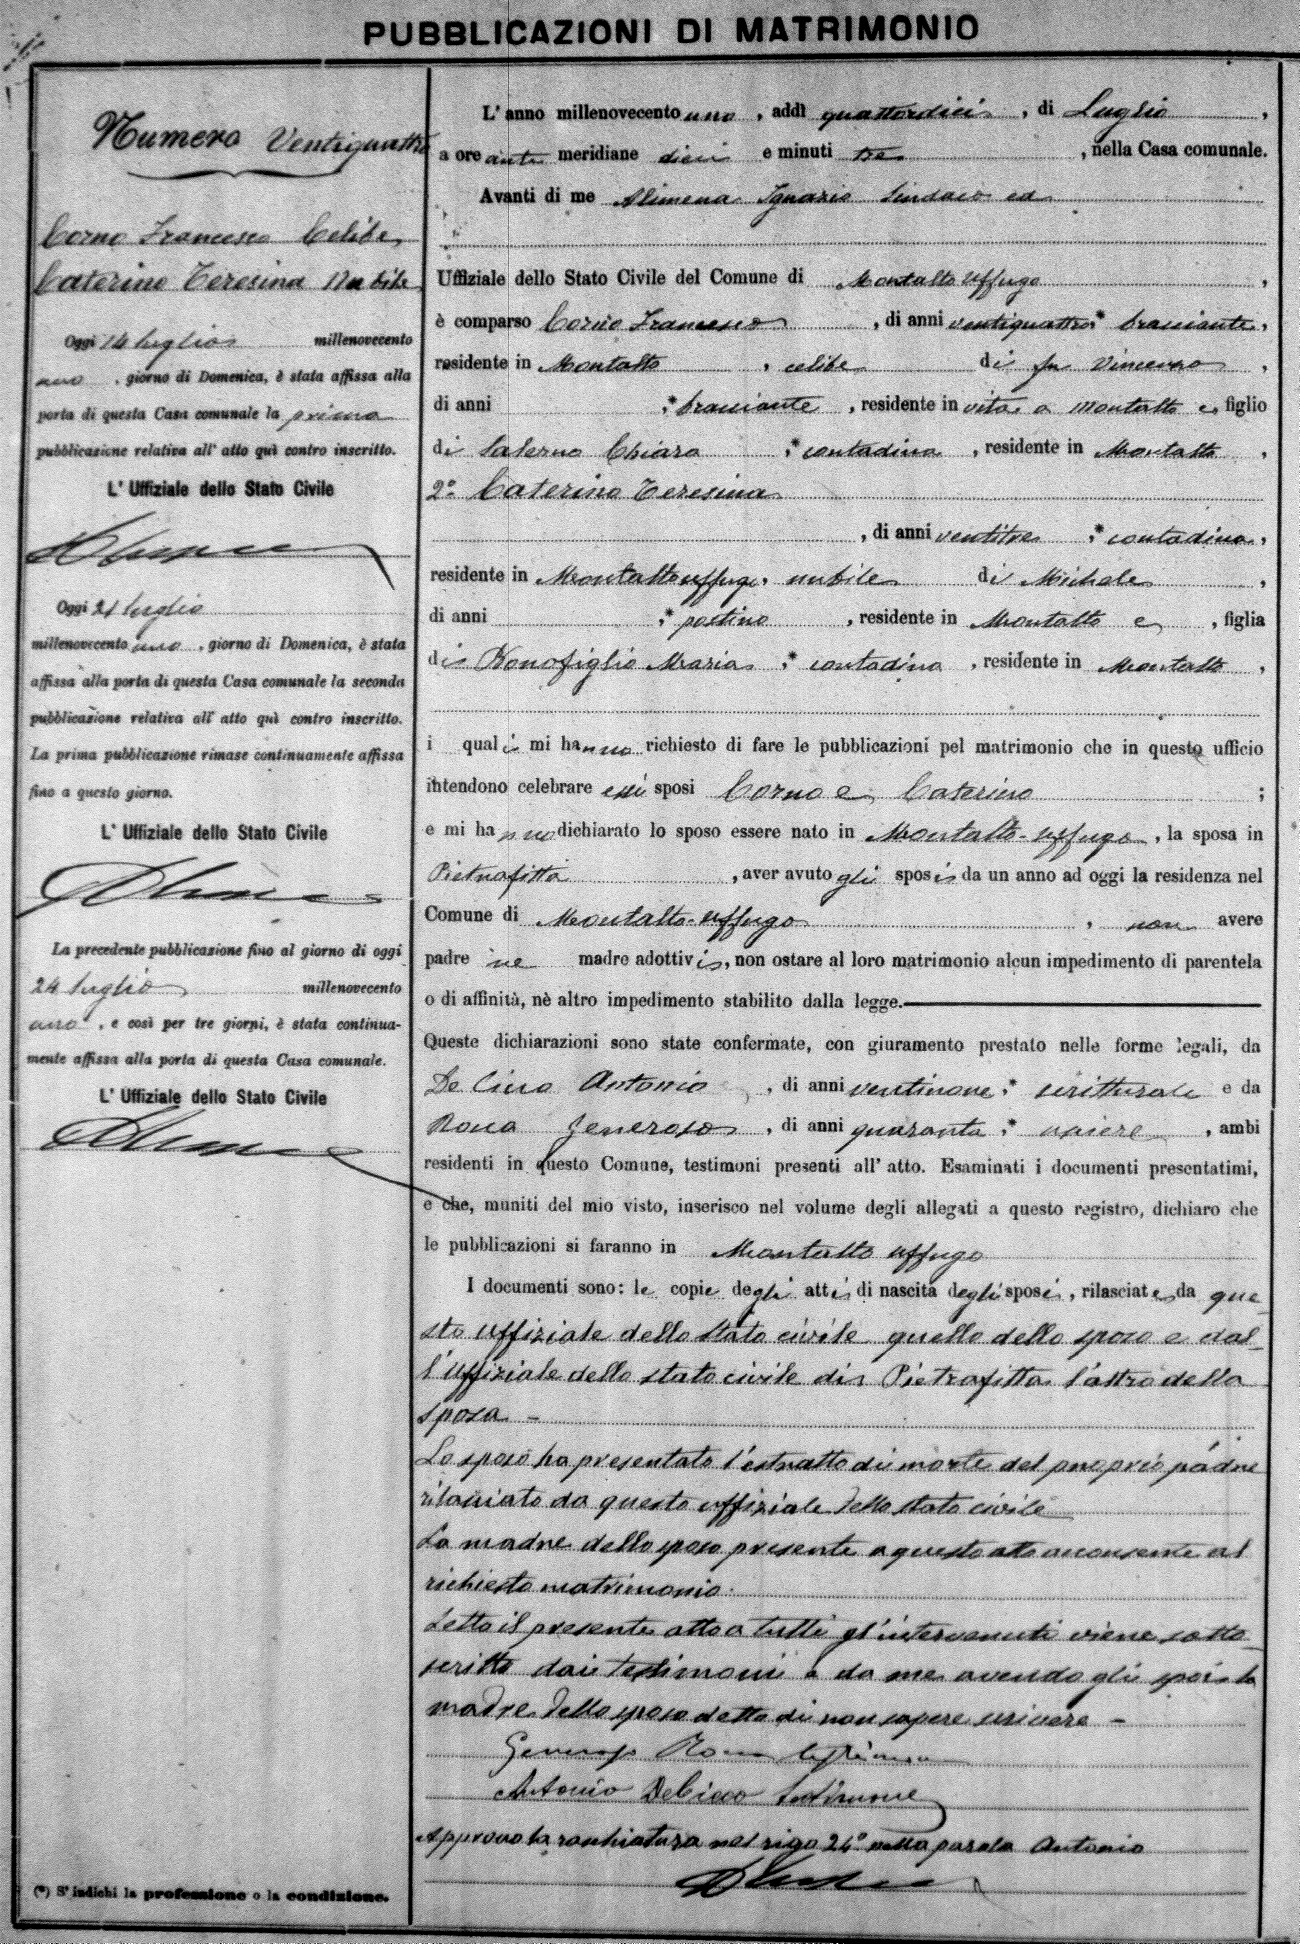 PUBBLICAZIONI DI MATRIMONIO
Numero Ventiquattro
Corno Francesco Celibe
Caterino Teresina Nubile
Oggi 14 luglio millenovecento
uno, giorno di Domenica, è stata affissa alla
porta di questa Casa comunale la prima
pubblicazione relativa all' atto quì contro inscritto.
L' Uffiziale dello Stato Civile
Oggi 21 luglio
millenovecento uno, giorno di Domenica, è stata
affissa alla porta di questa Casa comunale la seconda
pubblicazione relativa all' atto quì contro inscritto.
La prima pubblicazione rimase continuamente affissa
fino a questo giorno.
L' Uffiziale dello Stato Civile
La precedente pubblicazione fino al giorno di oggi
24 luglio millenovecento
uno, e così per tre giorni, è stata continua-
mente affissa alla porta di questa Casa comunale.
L' Uffiziale dello Stato Civile
(*) S' indichi la professione o la condizione.
L' anno millenovecento uno, addì quattordici, di Luglio,
a ore anti meridiane dieci e minuti tre, nella Casa comunale.
Avanti di me Alimena Ignazio Sindaco ed
Uffiziale dello Stato Civile del Comune di Montalto Uffugo,
è comparso Corno Francesco, di anni ventiquattro,* bracciante,
residente in Montalto, celibe di fu Vincenzo,
di anni ,* bracciante, residente in vita a Montalto e, figlio
di Salerno Chiara ,* contadina, residente in Montalto,
2° Caterino Teresina
, di anni ventitre ,* contadina,
residente in Montalto Uffugo, nubile di Michele,
di anni ,* postino, residente in Montalto e, figlia
di Bonofiglio Maria ,* contadina, residente in Montalto,
i quali mi hanno richiesto di fare le pubblicazioni pel matrimonio che in questo ufficio
intendono celebrare essi sposi Corno e Caterino ;
e mi hanno dichiarato lo sposo essere nato in Montalto-Uffugo, la sposa in
Pietrafitta, aver avuto gli sposi da un anno ad oggi la residenza nel
Comune di Montalto-Uffugo, non avere
padre nè madre adottivi, non ostare al loro matrimonio alcun impedimento di parentela
o di affinità, nè altro impedimento stabilito dalla legge.
Queste dichiarazioni sono state confermate, con giuramento prestato nelle forme legali, da
De Cicco Antonio, di anni ventinove,* scritturale e da
Rocca Generoso, di anni quaranta,* usciere, ambi
residenti in questo Comune, testimoni presenti all' atto. Esaminati i documenti presentatimi,
e che, muniti del mio visto, inserisco nel volume degli allegati a questo registro, dichiaro che
le pubblicazioni si faranno in Montalto Uffugo
I documenti sono: le copie degli atti di nascita degli sposi, rilasciate da que-
sto uffiziale dello stato civile quello dello sposo e dal-
l'uffiziale dello stato civile di Pietrafitta l'altro della
sposa -
Lo sposo ha presentato l'estratto di morte del proprio padre
rilasciato da questo uffiziale dello stato civile
La madre dello sposo presente a questo atto acconsente al
richiesto matrimonio.
Letto il presente atto a tutti gl'intervenuti viene sotto-
scritto dai testimoni e da me avendo gli sposi e la
madre dello sposo detto di non sapere scrivere -
Generoso Rocca testimone
Antonio De Cicco testimone
Approvo la raschiatura nel rigo 24° nella parola Antonio